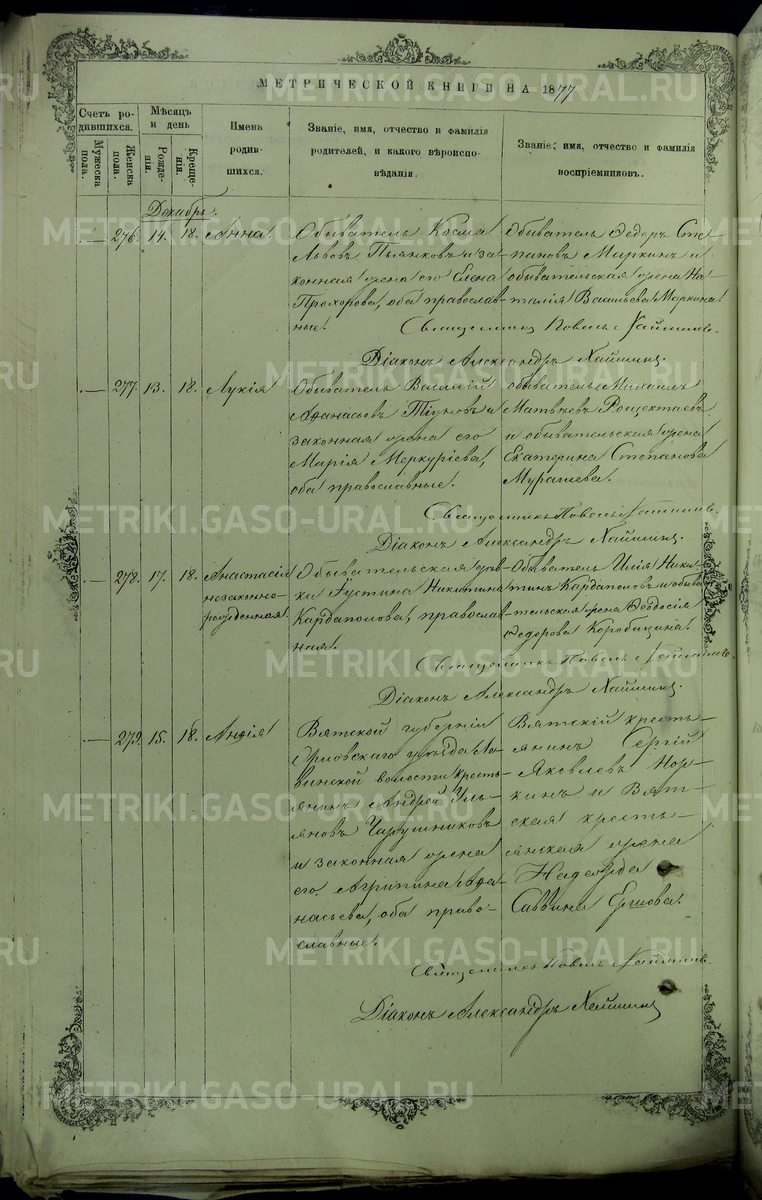 МЕТРИЧЕСКОЙ КНИГИ НА 1877
Счетъ ро-
дившихся.
Мужеска
пола.
Женска
пола.
Мѣсяцъ
и день
Рожде-
нія.
Креще-
нія.
Имена
родив-
шихся.
Званіе, имя, отчество и фамилія
родителей, и какого вѣроиспо-
вѣданія.
Званіе, имя, отчество и фамилія
воспріемниковъ.
Декабрь.
276. 14. 18. Анна.
Обыватель Косма
Львовъ Пьянковъ и за-
конная жена его Елена
Прохорова, оба православ-
ные.
Обыватель Ѳедоръ Сте-
пановъ Маркинъ и
обывательская жена На-
талія Васильева Маркина.
Священникъ Павелъ
Діаконъ Александръ
277. 13. 18. Лукія
Обыватель Василій
Аѳанасьевъ Тіуновъ и
законная жена его
Марія Меркуріева,
оба православные.
обыватель Михаилъ
Матвѣевъ
и обывательская жена
Екатерина Степанова
Мурашева.
Священникъ Павелъ
Діаконъ Александръ
278. 17. 18. Анастасія
незаконно-
рожденная.
Обывательская дѣв-
ка Іустина Никитина
Кардаполова, православ-
ная.
Обыватель Илія Ники-
тинъ Кардаполовъ и обыва-
тельская жена Ѳеодосія
Ѳедорова Коробицина.
Священникъ Павелъ
Діаконъ Александръ
279. 15. 18.
Вятской губерніи
Орловскаго уѣзда
волости кресть-
янинъ Андрей Улья-
новъ Чарушниковъ
и законная жена
его Агрипина Аѳа-
насьева, оба право-
славные.
Вятскій кресть-
янинъ Сергій
Яковлевъ Нор-
кинъ и Вят-
ская кресть-
янская жена
Надежда
Саввина Ершова.
Священникъ Павелъ
Діаконъ Александръ
METRIKI.GASO-URAL.RU